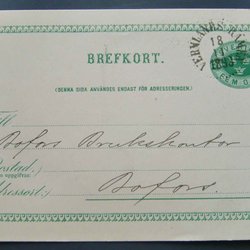 BREFKORT.
(DENNA SIDA ANVÄNDES ENDAST FÖR ADRESSERINGEN.)
18
FEM Ö
Till
Bofors Brukskontor
Postad.
Bofors.
Adressort: